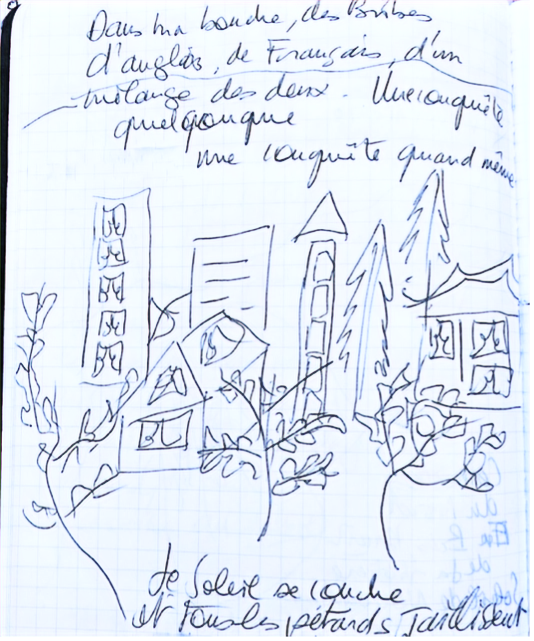 Dans ma bouche, des Bribes
d'anglais, de Français, d'un
mélange des deux. Une conquête
quelqonque
une conquête quand même
Le Soleil se couche
et Tous les pétards Jaillisent